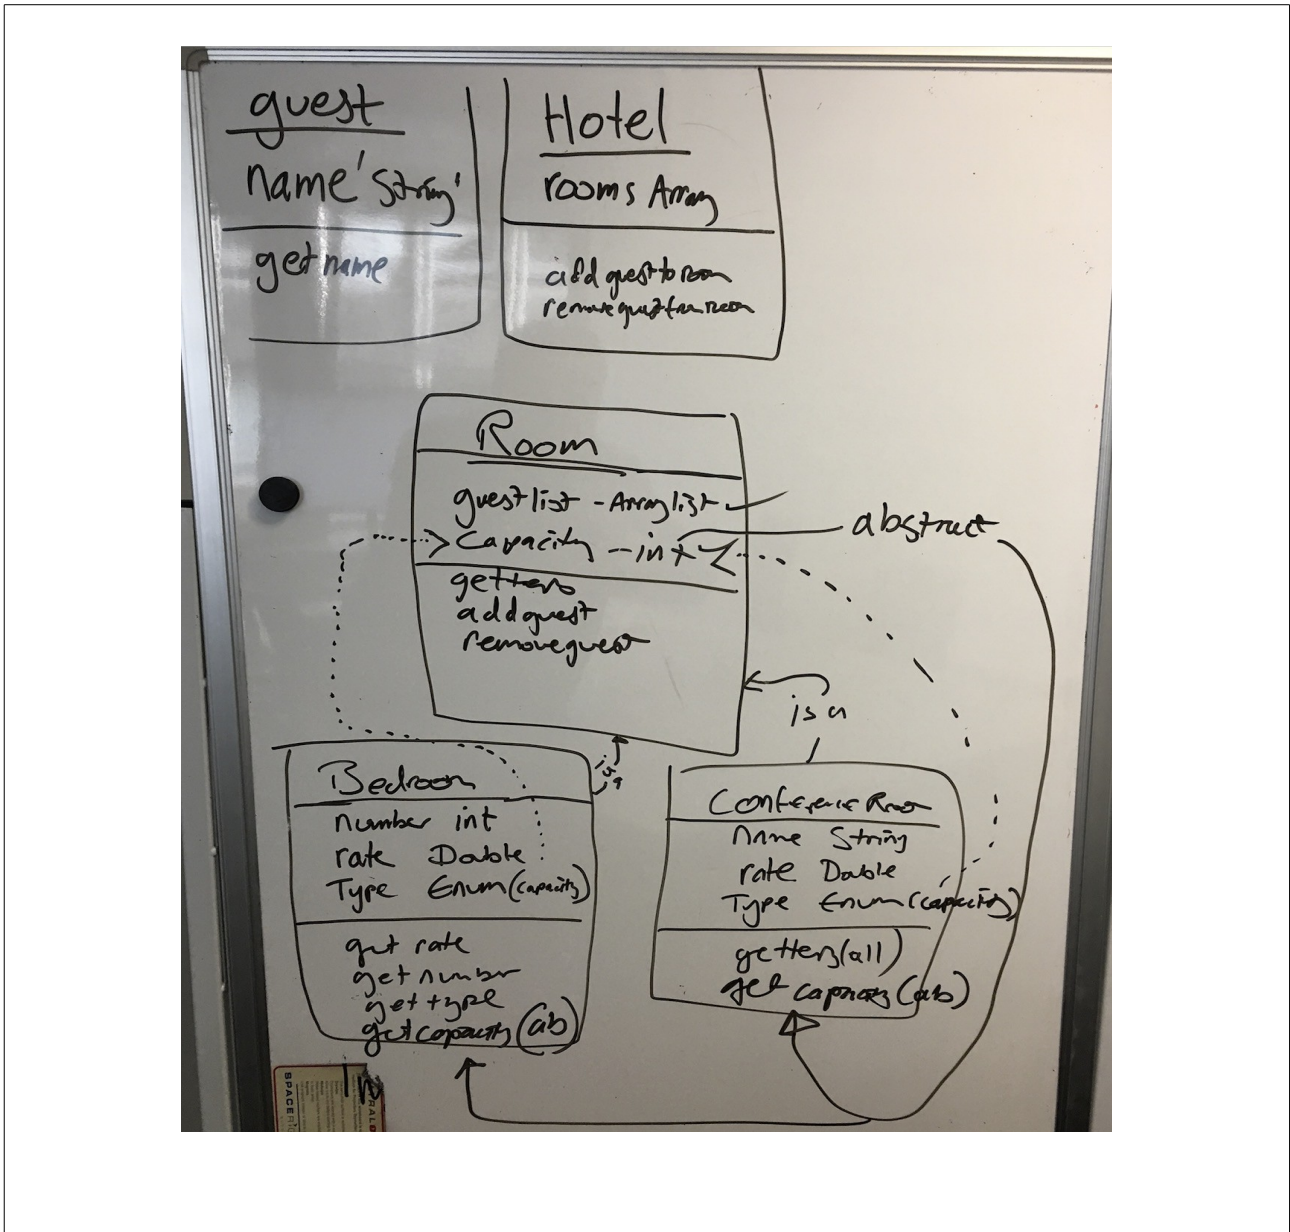 guest
name 'String'
getname
Hotel
rooms Array
add guest to room
remove guest from room
Room
guest list - Array list
Capacity - int
abstract
getters
add guest
remove guest
is a
is a
Bedroom
number int
rate Double
Type Enum (capacity)
get rate
get number
get type
get capacity (ab)
Conference Room
Name String
rate Double
Type Enum (capacity)
getters (all)
get capacity (ab)
SPACE